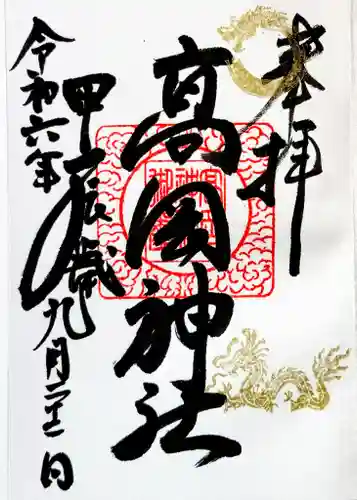 奉拝
髙 神社
甲辰歳九月二十二日
令和六年